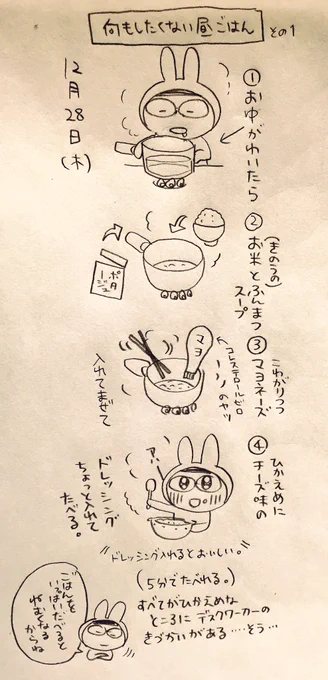 何もしたくない昼ごはん その1
12月28日(木)
①おゆがわいたら
②(きのうの)
お米とふんまつ
スープ
ポタージュ
③こわがりつつ
マヨネーズ
コレステロールゼロ
のヤツ
マヨ
入れてまぜて
④ひかえめに
チーズ味の
ドレッシング
ちょっと入れて
たべる。
ドレッシング入れるとおいしい。
(5分でたべれる。)
すべてがひかえめな
ところにデスクワーカーの
きづかいがある……そう…
ごはんを
いっぱいたべると
ねむくなる
からね